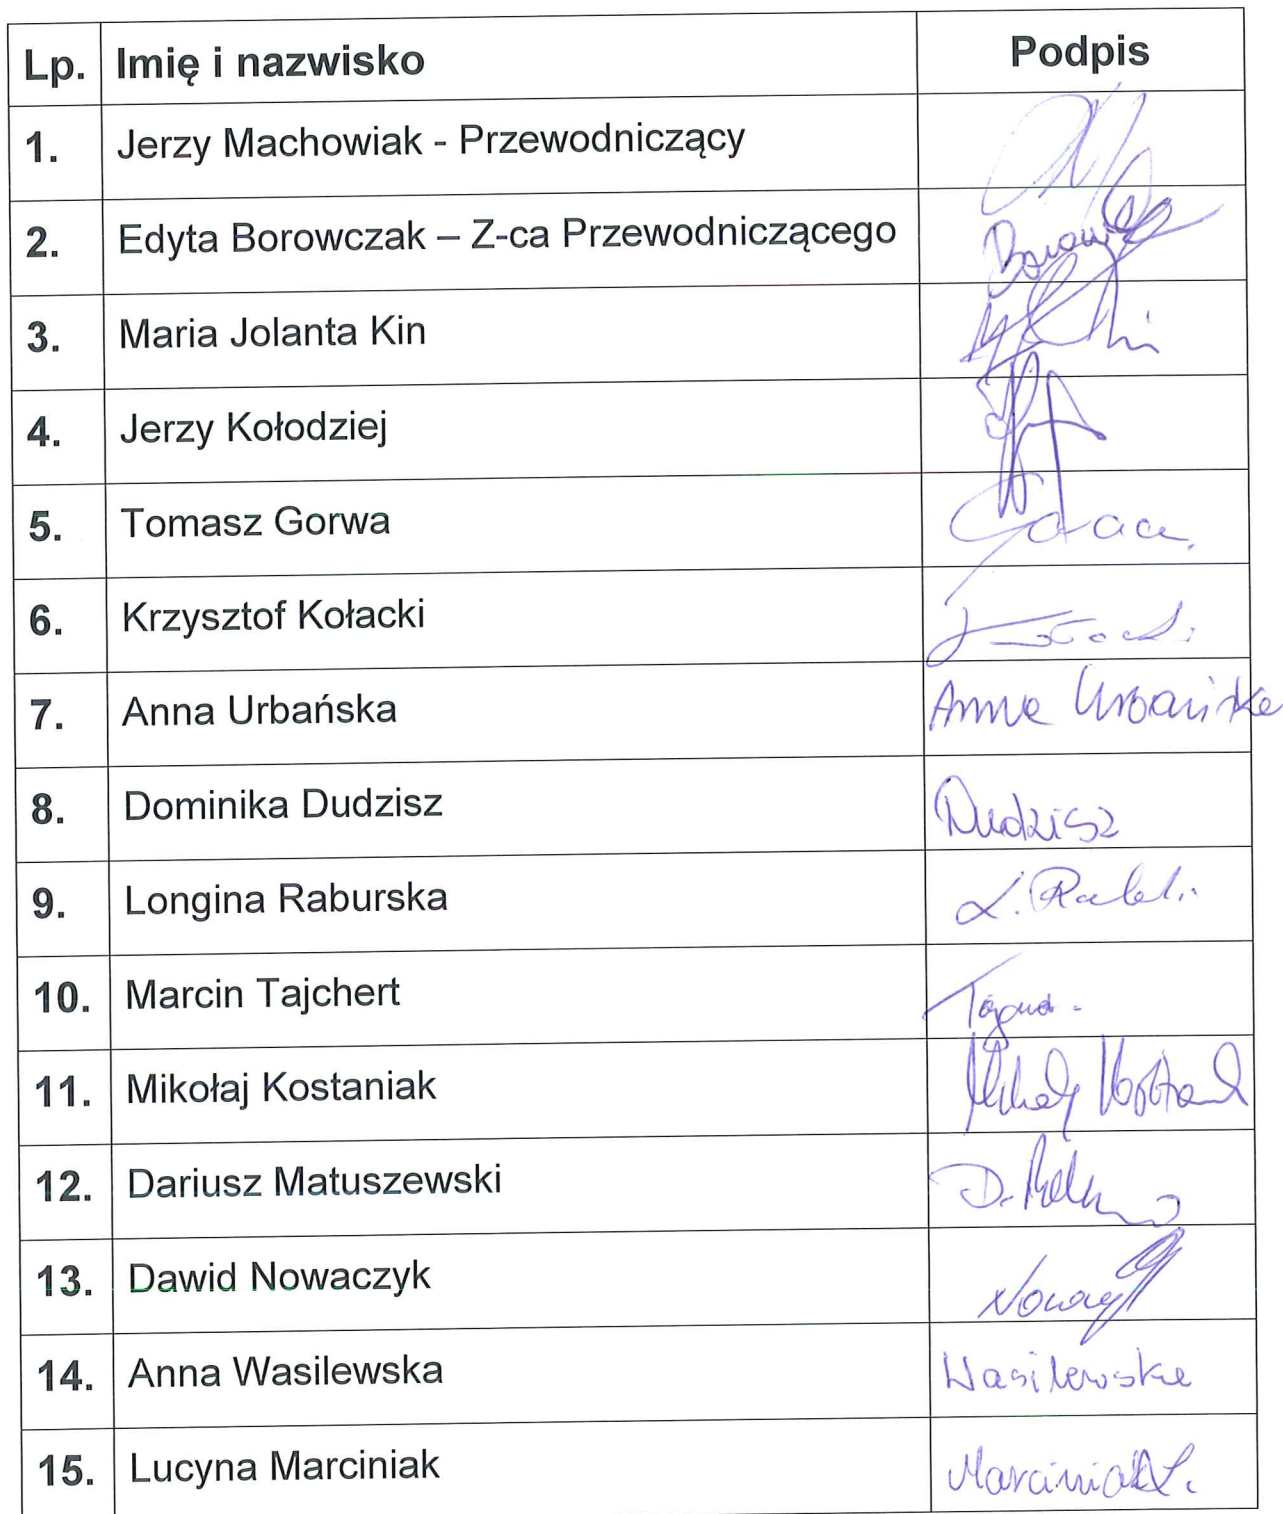 Lp. Imię i nazwisko Podpis
1. Jerzy Machowiak - Przewodniczący
2. Edyta Borowczak – Z-ca Przewodniczącego
3. Maria Jolanta Kin
4. Jerzy Kołodziej
5. Tomasz Gorwa
6. Krzysztof Kołacki
7. Anna Urbańska Anna Urbańska
8. Dominika Dudzisz Dudzisz
9. Longina Raburska L.
10. Marcin Tajchert
11. Mikołaj Kostaniak Mikołaj
12. Dariusz Matuszewski D.
13. Dawid Nowaczyk
14. Anna Wasilewska Wasilewska
15. Lucyna Marciniak Marciniak L.